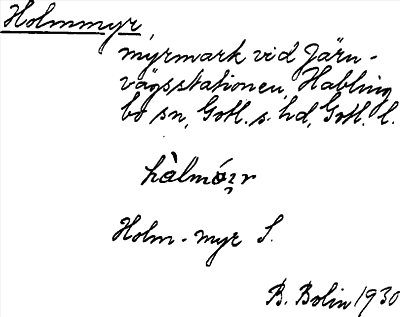 Holmmyr,
myrmark vid Järn-
vägsstationen, Habling
bo sn, Gotl. s. hd, Gotl. l.
Holm-myr S.
B. Bolin 1930